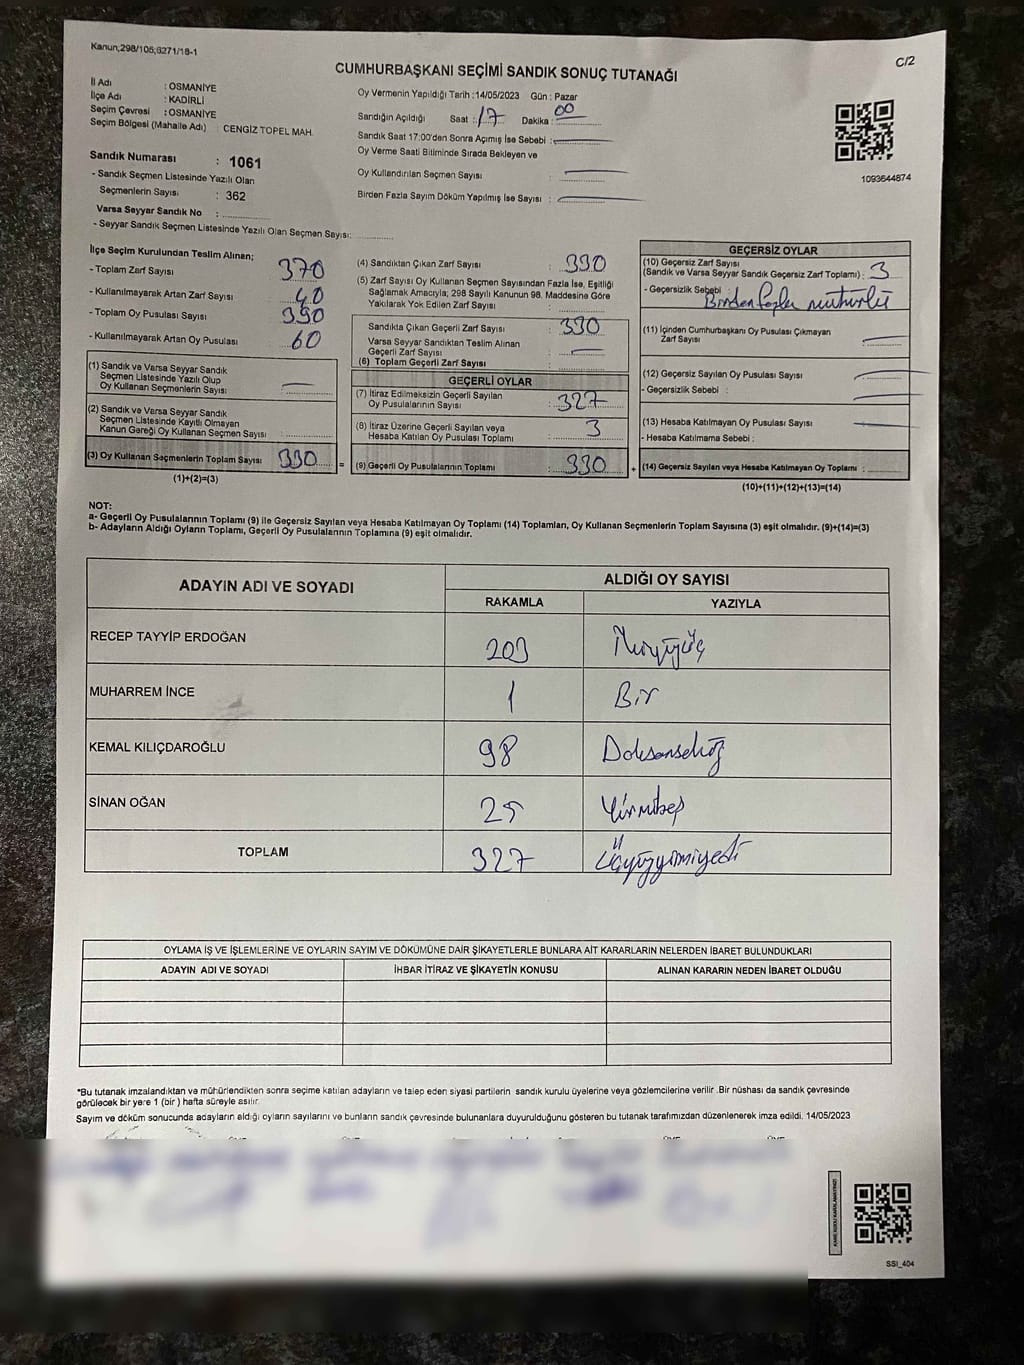 Kanun;298/105;6271/18-1
C/2
CUMHURBAŞKANI SEÇİMİ SANDIK SONUÇ TUTANAĞI
İl Adı : OSMANİYE
İlçe Adı : KADİRLİ
Seçim Çevresi : OSMANİYE
Seçim Bölgesi (Mahalle Adı) : CENGİZ TOPEL MAH.
Sandık Numarası : 1061
- Sandık Seçmen Listesinde Yazılı Olan
Seçmenlerin Sayısı : 362
Varsa Seyyar Sandık No :
- Seyyar Sandık Seçmen Listesinde Yazılı Olan Seçmen Sayısı:
Oy Vermenin Yapıldığı Tarih :14/05/2023 Gün : Pazar
Sandığın Açıldığı Saat : 17 Dakika : 00
Sandık Saat 17:00'den Sonra Açımış İse Sebebi :
Oy Verme Saati Bitiminde Sırada Bekleyen ve
Oy Kullandırılan Seçmen Sayısı :
Birden Fazla Sayım Döküm Yapılmış İse Sayısı :
1093644874
İlçe Seçim Kurulundan Teslim Alınan;
- Toplam Zarf Sayısı : 370
- Kullanılmayarak Artan Zarf Sayısı : 40
- Toplam Oy Pusulası Sayısı : 390
- Kullanılmayarak Artan Oy Pusulası : 60
(1) Sandık ve Varsa Seyyar Sandık
Seçmen Listesinde Yazılı Olup
Oy Kullanan Seçmenlerin Sayısı :
(2) Sandık ve Varsa Seyyar Sandık
Seçmen Listesinde Kayıtlı Olmayan
Kanun Gereği Oy Kullanan Seçmen Sayısı :
(3) Oy Kullanan Seçmenlerin Toplam Sayısı : 330
(1)+(2)=(3)
(4) Sandıktan Çıkan Zarf Sayısı : 330
(5) Zarf Sayısı Oy Kullanan Seçmen Sayısından Fazla İse, Eşitliği
Sağlamak Amacıyla; 298 Sayılı Kanunun 98. Maddesine Göre
Yakılarak Yok Edilen Zarf Sayısı :
Sandıkta Çıkan Geçerli Zarf Sayısı : 330
Varsa Seyyar Sandıktan Teslim Alınan
Geçerli Zarf Sayısı :
(6) Toplam Geçerli Zarf Sayısı :
GEÇERLİ OYLAR
(7) İtiraz Edilmeksizin Geçerli Sayılan
Oy Pusulalarının Sayısı : 327
(8) İtiraz Üzerine Geçerli Sayılan veya
Hesaba Katılan Oy Pusulası Toplamı : 3
= (9) Geçerli Oy Pusulalarının Toplamı : 330 +
GEÇERSİZ OYLAR
(10) Geçersiz Zarf Sayısı
(Sandık ve Varsa Seyyar Sandık Geçersiz Zarf Toplamı) : 3
- Geçersizlik Sebebi : Birden fazla mühürlü
(11) İçinden Cumhurbaşkanı Oy Pusulası Çıkmayan
Zarf Sayısı :
(12) Geçersiz Sayılan Oy Pusulası Sayısı :
- Geçersizlik Sebebi :
(13) Hesaba Katılmayan Oy Pusulası Sayısı :
- Hesaba Katılmama Sebebi :
(14) Geçersiz Sayılan veya Hesaba Katılmayan Oy Toplamı :
(10)+(11)+(12)+(13)=(14)
NOT:
a- Geçerli Oy Pusulalarının Toplamı (9) ile Geçersiz Sayılan veya Hesaba Katılmayan Oy Toplamı (14) Toplamları, Oy Kullanan Seçmenlerin Toplam Sayısına (3) eşit olmalıdır. (9)+(14)=(3)
b- Adayların Aldığı Oyların Toplamı, Geçerli Oy Pusulalarının Toplamına (9) eşit olmalıdır.
ADAYIN ADI VE SOYADI ALDIĞI OY SAYISI
RAKAMLA YAZIYLA
RECEP TAYYİP ERDOĞAN 203 İkiyüzüç
MUHARREM İNCE 1 Bir
KEMAL KILIÇDAROĞLU 98 Doksansekiz
SİNAN OĞAN 25 Yirmibeş
TOPLAM 327 Üçyüzyirmiyedi
OYLAMA İŞ VE İŞLEMLERİNE VE OYLARIN SAYIM VE DÖKÜMÜNE DAİR ŞİKAYETLERLE BUNLARA AİT KARARLARIN NELERDEN İBARET BULUNDUKLARI
ADAYIN ADI VE SOYADI İHBAR İTİRAZ VE ŞİKAYETİN KONUSU ALINAN KARARIN NEDEN İBARET OLDUĞU
*Bu tutanak imzalandıktan ve mühürlendikten sonra seçime katılan adayların ve talep eden siyasi partilerin sandık kurulu üyelerine veya gözlemcilerine verilir .Bir nüshası da sandık çevresinde
görülecek bir yere 1 (bir ) hafta süreyle asılır.
Sayım ve döküm sonucunda adayların aldığı oyların sayılarını ve bunların sandık çevresinde bulunanlara duyurulduğunu gösteren bu tutanak tarafımızdan düzenlenerek imza edildi. 14/05/2023
SSI_404